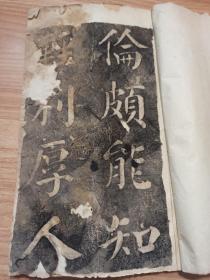 倫頗能知
利厚人